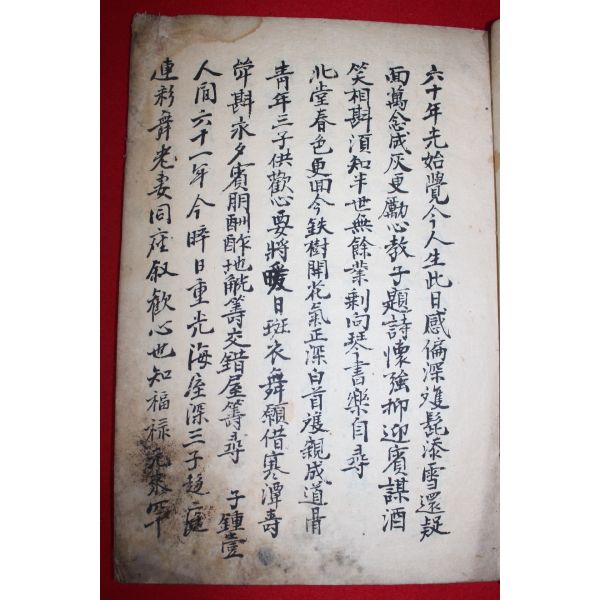 六十年光始覺今人生此日感偏深雙髭添雪還疑
面萬念成灰更勵心教子題詩懷強抑迎賓謀酒
笑相斟須知半世無餘業剩向琴書樂自尋
北堂春色更回今鉄樹開花氣正深白首雙親成道骨
靑年三子供歡心要將暖日斑衣舞願借寒潭壽
斝斟永夕賓朋酬酢地觥籌交錯屋籌尋 子鍾壹
人间六十一年今晬日重光海屋深三子趍庭
連彩舞老妻同座叙歡心也知福祿元來